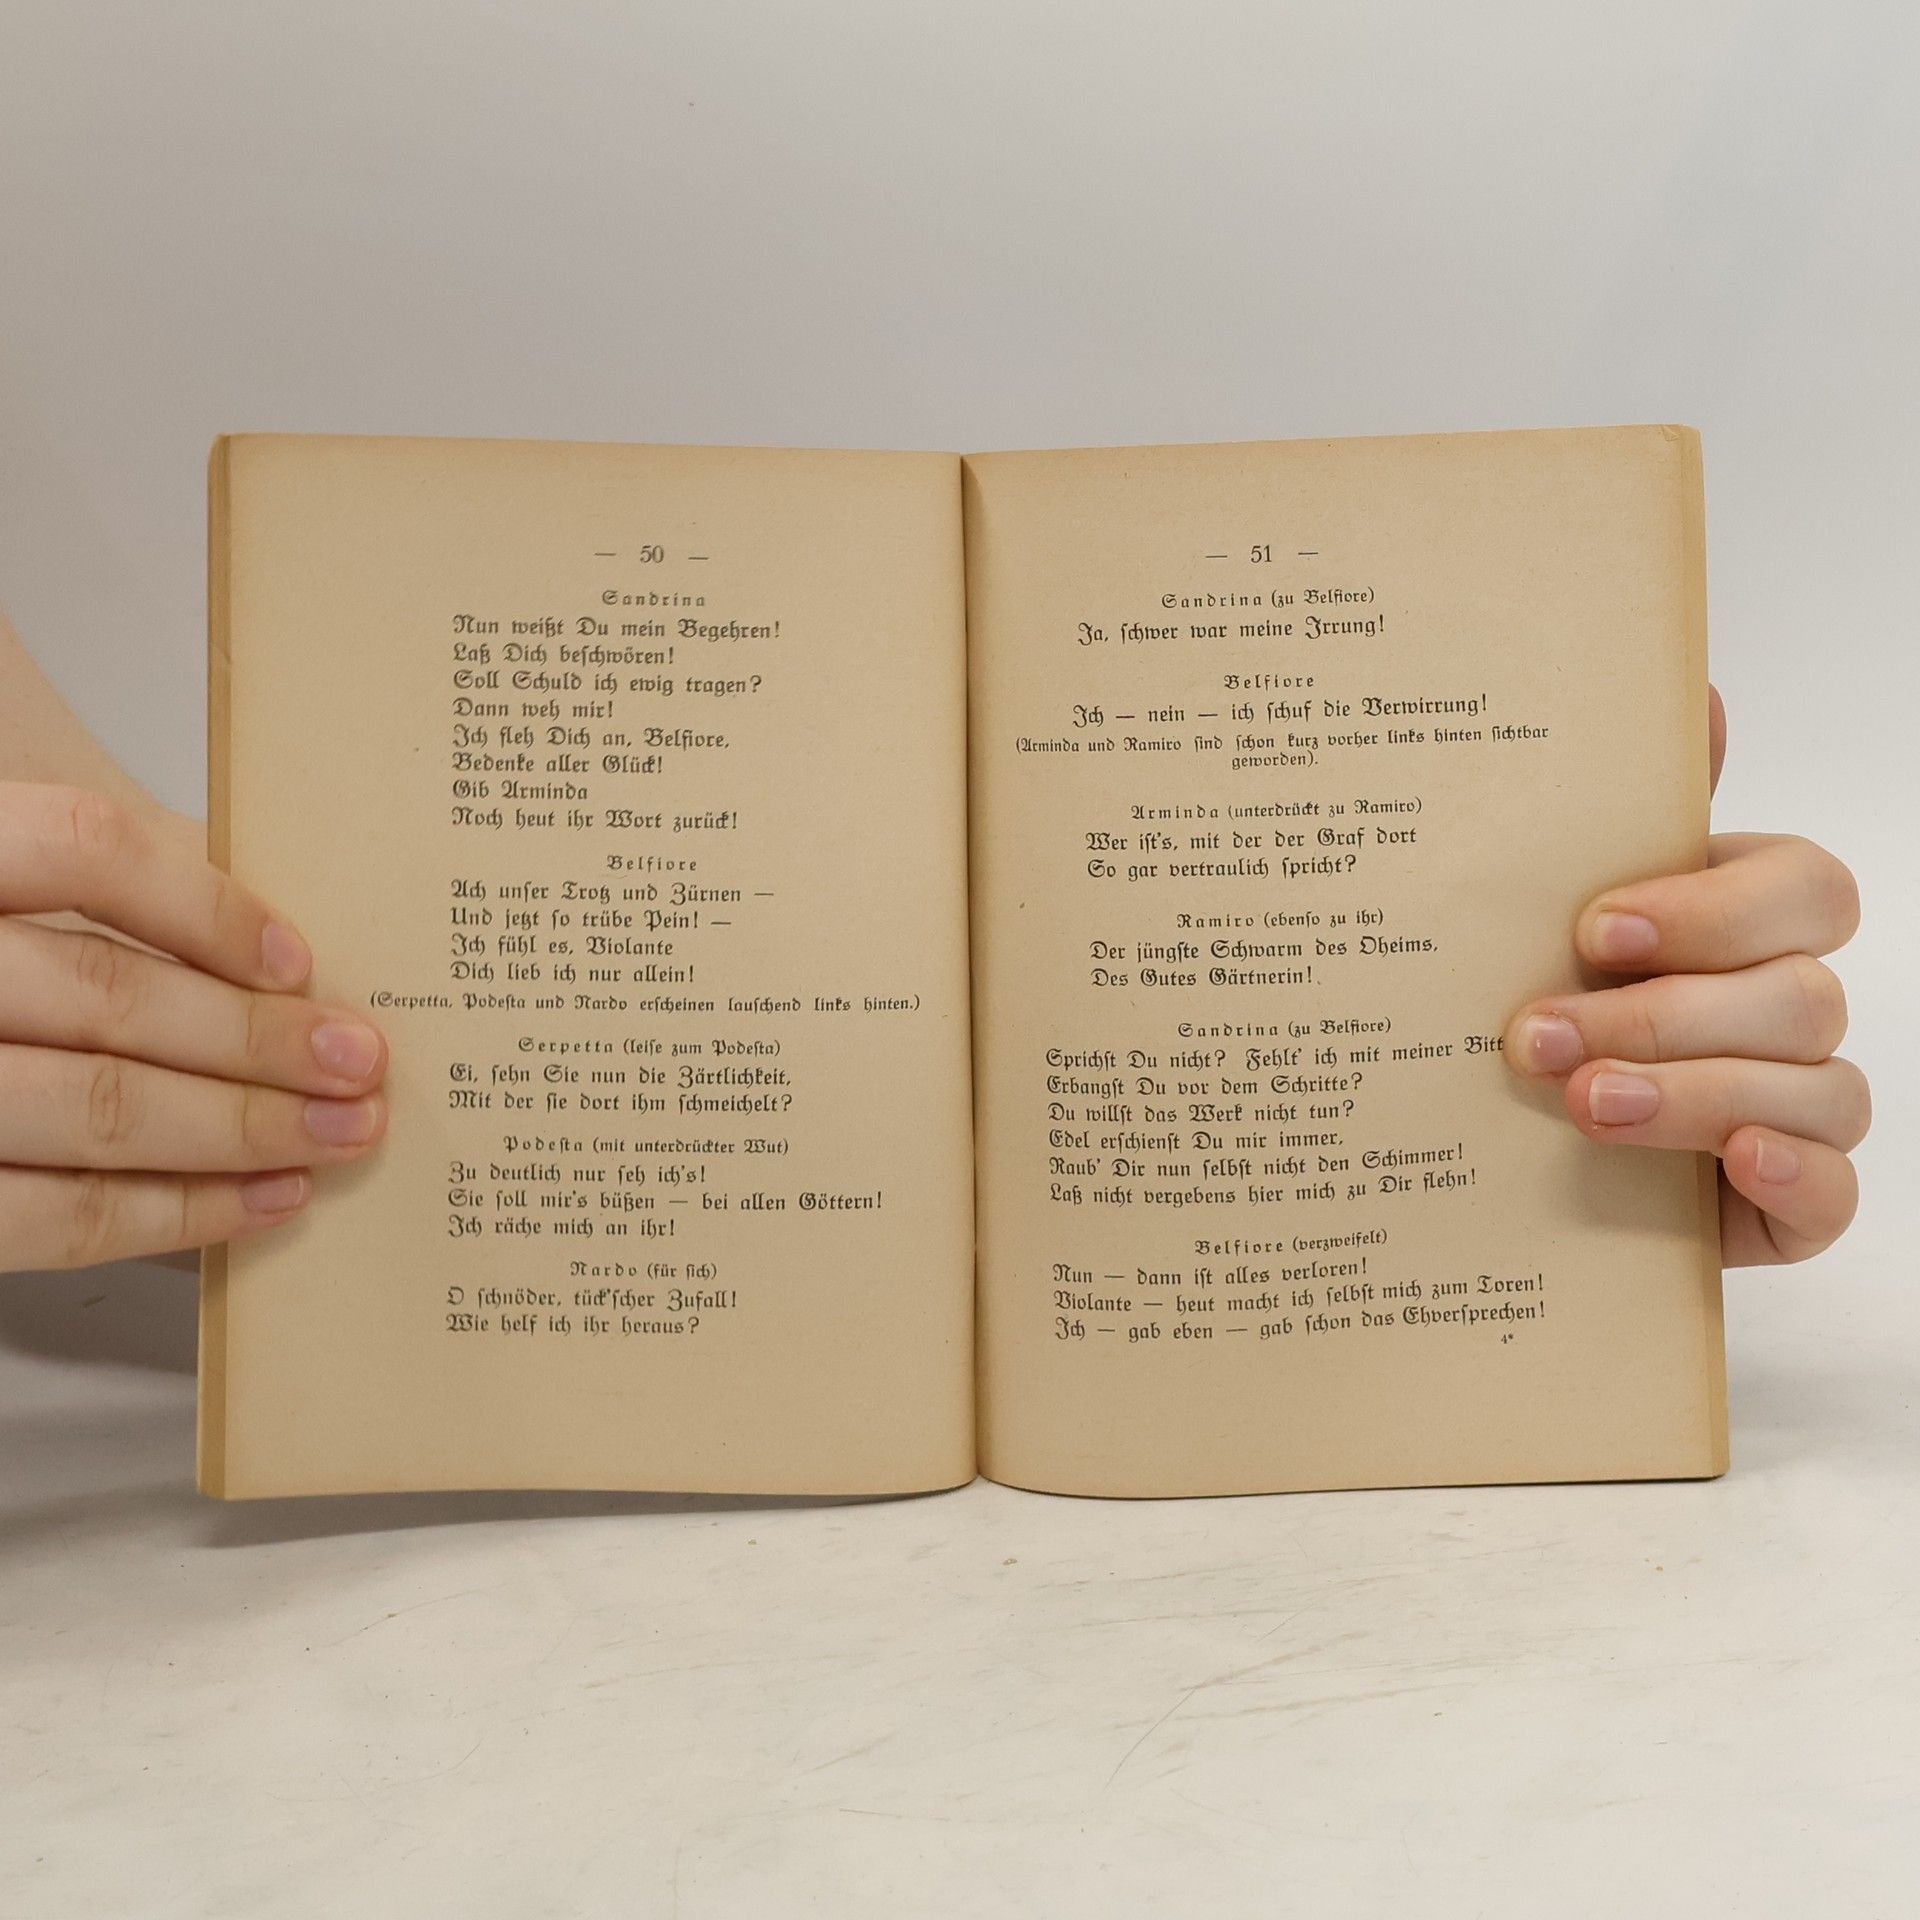 — 50 —
Sandrina
Nun weißt Du mein Begehren!
Laß Dich beſchwören!
Soll Schuld ich ewig tragen?
Dann weh mir!
Ich fleh Dich an, Belfiore,
Bedenke aller Glück!
Gib Arminda
Noch heut ihr Wort zurück!
Belfiore
Ach unſer Trotz und Zürnen —
Und jetzt ſo trübe Pein! —
Ich fühl es, Violante
Dich lieb ich nur allein!
(Serpetta, Podeſta und Nardo erſcheinen lauſchend links hinten.)
Serpetta (leiſe zum Podeſta)
Ei, ſehn Sie nun die Zärtlichkeit,
Mit der ſie dort ihm ſchmeichelt?
Podeſta (mit unterdrückter Wut)
Zu deutlich nur ſeh ich's!
Sie ſoll mir's büßen — bei allen Göttern!
Ich räche mich an ihr!
Nardo (für ſich)
O ſchnöder, tück'ſcher Zufall!
Wie helf ich ihr heraus?
— 51 —
Sandrina (zu Belfiore)
Ja, ſchwer war meine Irrung!
Belfiore
Ich — nein — ich ſchuf die Verwirrung!
(Arminda und Ramiro ſind ſchon kurz vorher links hinten ſichtbar
geworden).
Arminda (unterdrückt zu Ramiro)
Wer iſt's, mit der der Graf dort
So gar vertraulich ſpricht?
Ramiro (ebenſo zu ihr)
Der jüngſte Schwarm des Oheims,
Des Gutes Gärtnerin!
Sandrina (zu Belfiore)
Sprichſt Du nicht? Fehlt' ich mit meiner Bitt
Erbangſt Du vor dem Schritte?
Du willſt das Werk nicht tun?
Edel erſchienſt Du mir immer,
Raub' Dir nun ſelbſt nicht den Schimmer!
Laß nicht vergebens hier mich zu Dir flehn!
Belfiore (verzweifelt)
Nun — dann iſt alles verloren!
Violante — heut macht ich ſelbſt mich zum Toren!
Ich — gab eben — gab ſchon das Ehverſprechen!
4*